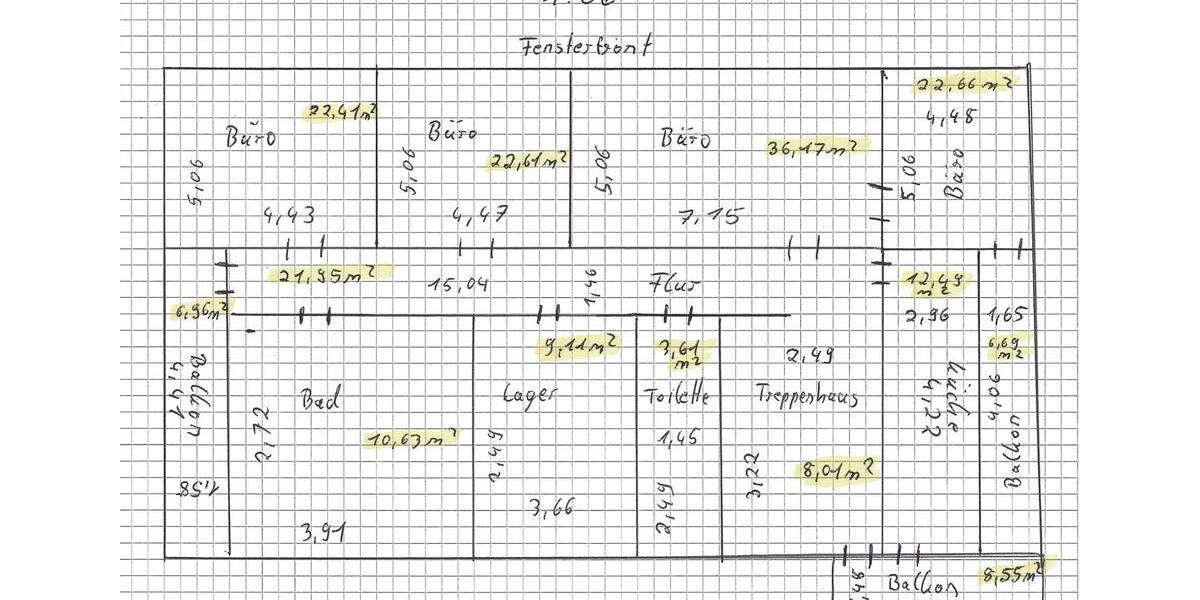 Fensterfront
22,41m²
Büro
5,06
4,43
Büro
22,61m²
5,06
4,47
Büro
36,17m²
5,06
7,15
22,66m²
4,48
5,06
Büro
21,95m²
15,04
1,46
Flur
6,96m²
Balkon
4,41
1,58
Bad
2,72
10,63m²
3,91
9,11m²
Lager
2,49
3,66
3,61
m²
Toilette
1,45
2,49
2,49
Treppenhaus
3,22
8,01m²
12,49
m²
2,96
Küche
4,22
1,65
6,69
m²
4,06
Balkon
Balkon
8,55m²